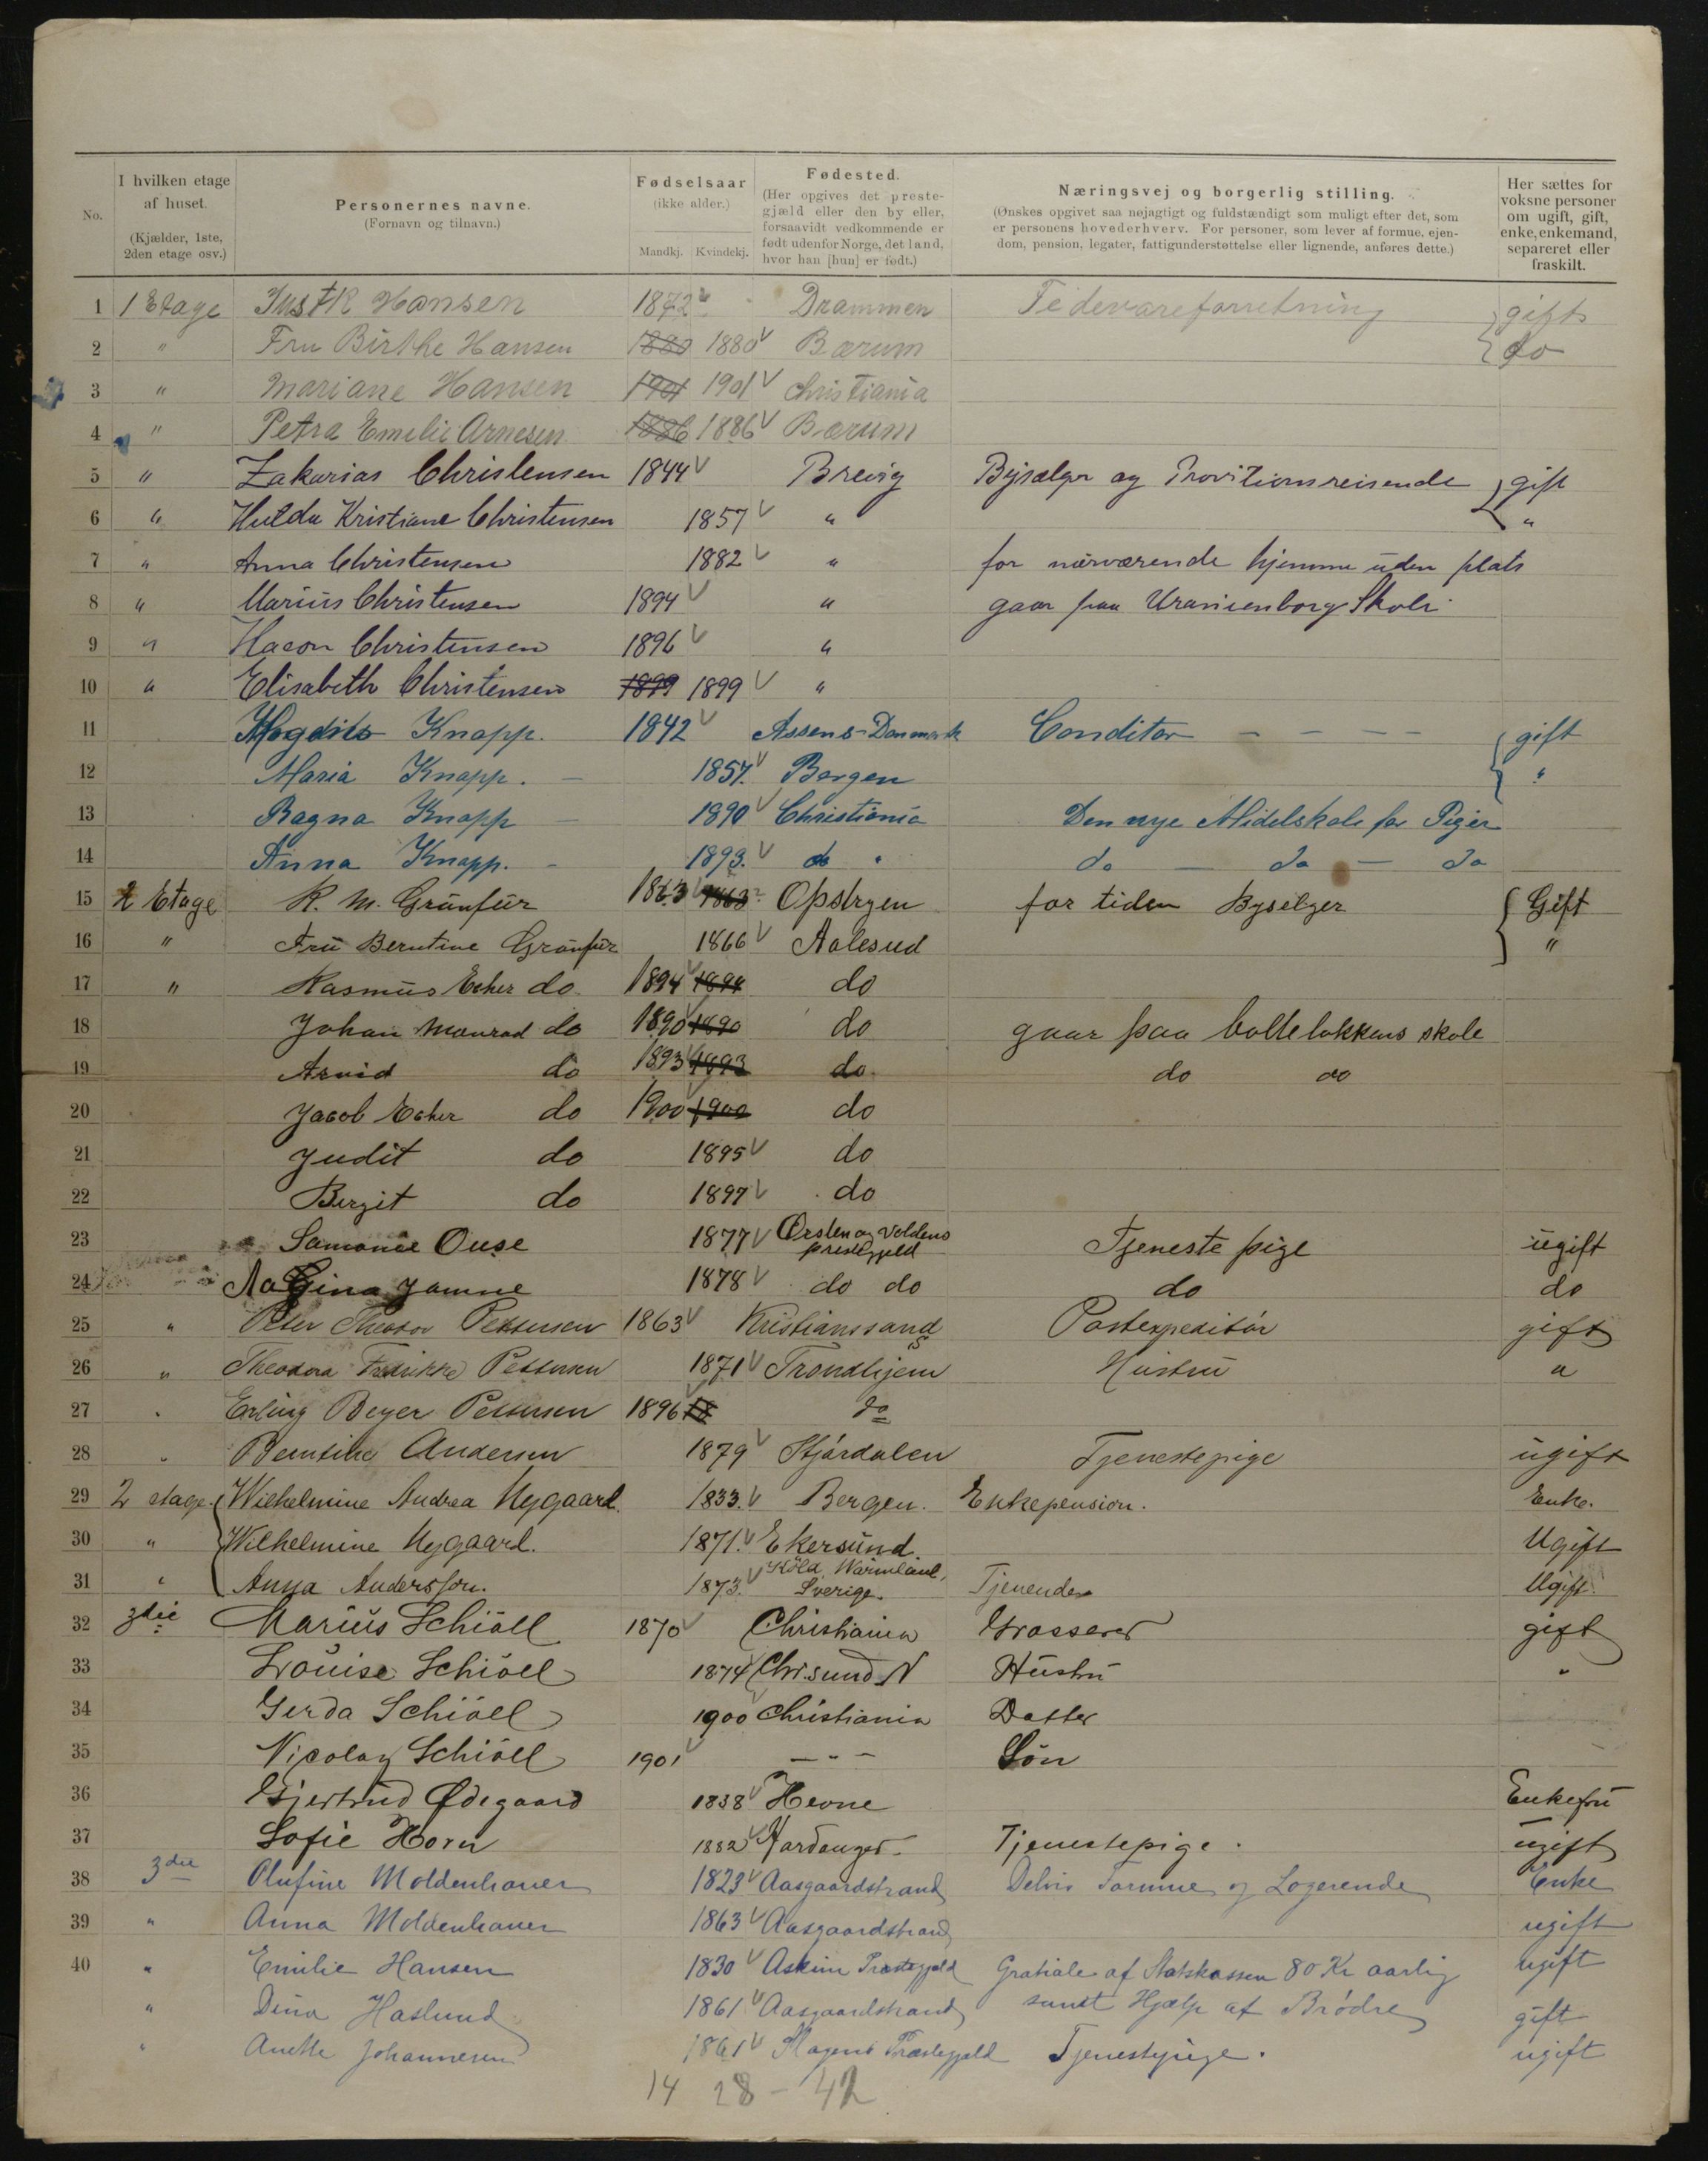 No.
I hvilken etage af huset. (Kjælder, 1ste, 2den etage osv.)
Personernes navne. (Fornavn og tilnavn.)
Fødselsaar (ikke alder.) Mandkj. Kvindekj.
Fødested. (Her opgives det prestegjæld eller den by eller, forsaavidt vedkommende er født udenfor Norge, det land, hvor han [hun] er født.)
Næringsvej og borgerlig stilling. (Ønskes opgivet saa nøjagtigt og fuldstændigt som muligt efter det, som er personens hovederhverv. For personer, som lever af formue, ejendom, pension, legater, fattigunderstøttelse eller lignende, anføres dette.)
Her sættes for voksne personer om ugift, gift, enke, enkemand, separeret eller fraskilt.
1 1 Etage Just R Hansen 1872 Drammen Fedevareforretning gift
2 " Fru Birthe Hansen 1880 1880 Bærum do
3 " Mariane Hansen 1901 1901 Christiania
4 " Petra Emelie Arnesen 1886 1886 Bærum
5 " Zakarias Christensen 1844 Brevig Bysælger og Provitionsreisende gift
6 " Hulda Kristiane Christensen 1857 " "
7 " Anna Christensen 1882 " for nærværende hjemme uden plats
8 " Marius Christensen 1894 " gaar paa Uranienborg Skole
9 " Hacon Christensen 1896 "
10 " Elisabeth Christensen 1899 1899 "
11 Knapp. 1842 Assens-Danmark Conditor - - - - gift
12 Maria Knapp. - 1857. Bergen "
13 Ragna Knapp - 1890 Christiania Den nye Midelskole for Piger
14 Anna Knapp. - 1893. do " do - do - do
15 2 Etage R. M. Grünfür 1863 1863 Opstryen for tiden Byselger Gift
16 " Frü Berntine Grünfür 1866 Aalesud "
17 " Rasmüs Esher do 1894 1894 do
18 Johan Monrad do 1890 1890 do gaar paa bolteløkkens skole
19 Arvid do 1893 1893 do do do
20 Jacob Esher do 1900 1900 do
21 Judit do 1895 do
22 Bergit do 1897 do
23 Samonae Ouse 1877 Ørsten og Voldens prestegjeld Tjeneste pige ugift
24 Gina Jamne 1878 do do do do
25 " Peter Theodor Pettersen 1863 Kristianssand S Postexpeditør gift
26 " Theodora Fredrikke Pettersen 1871 Trondhjem Hustru "
27 " Erling Beyer Pettersen 1896 18 do
28 " Berntine Andersen 1879 Stjørdalen Tjenestepige ugift
29 2 etage. Wilhelmine Andrea Nygaard. 1833. Bergen. Enkepension. Enke.
30 " Wilhelmine Nygaard. 1871. Ekersund Ugift
31 " Anna Andersson. 1873. Köla, Wärmland, Sverige. Tjenende Ugift.
32 3die Marius Schiøll 1870 Christiania Grosserer gift
33 Lovise Schiøll 1874 Chr.sund N Hustru "
34 Gerda Schiøll 1900 Christiania Datter
35 Nicolay Schiøll 1901 - " - Søn
36 Gjertrud Ødegaard 1838 Hevne Enkefru
37 Sofie Horn 1882 Hardanger - Tjenestepige. ugift
38 3die Olufine Moldenhauer 1823 Aasgaardstrand Delvis Formue og Logerende Enke
39 " Anna Moldenhauer 1863 Aasgaardstrand ugift
40 " Emilie Hansen 1830 Askim Præstegjeld Gratiale af Statskassen 80 Kr aarlig ugift
" Dina Haslund 1861 Aasgaardstrand samt Hjælp af Brødre gift
" Anette Johannesen 1861 Slagens Præstegjeld Tjenestepige. ugift
14 28 - 42